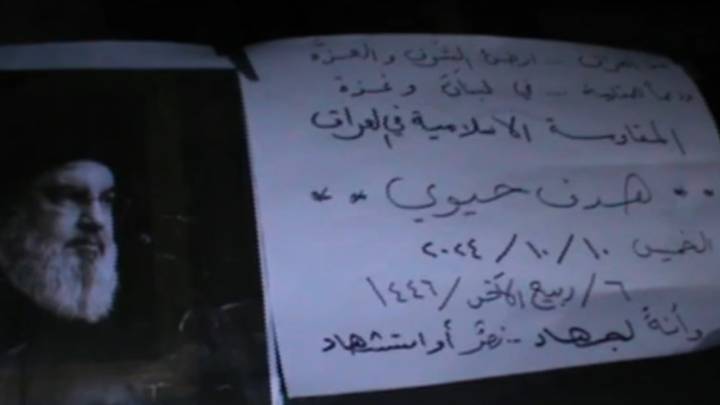 العراق .. ارض الشرف والعزة
المقاومة .. في لبنان وغزة
المقاومة الاسلامية في العراق
** هدف حيوي **
الخميس ٢٠٢٤/١٠/١٠
٦/ربيع الآخر/١٤٤٦
وأنهُ لجهاد .. نصرٌ أو استشهاد